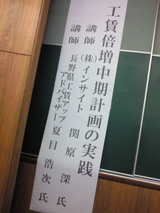 工賃倍増中期計画の実践
講師 (株)インサイト 関原 深 氏
講師 長野県工賃アップアドバイザー 夏目 浩次 氏